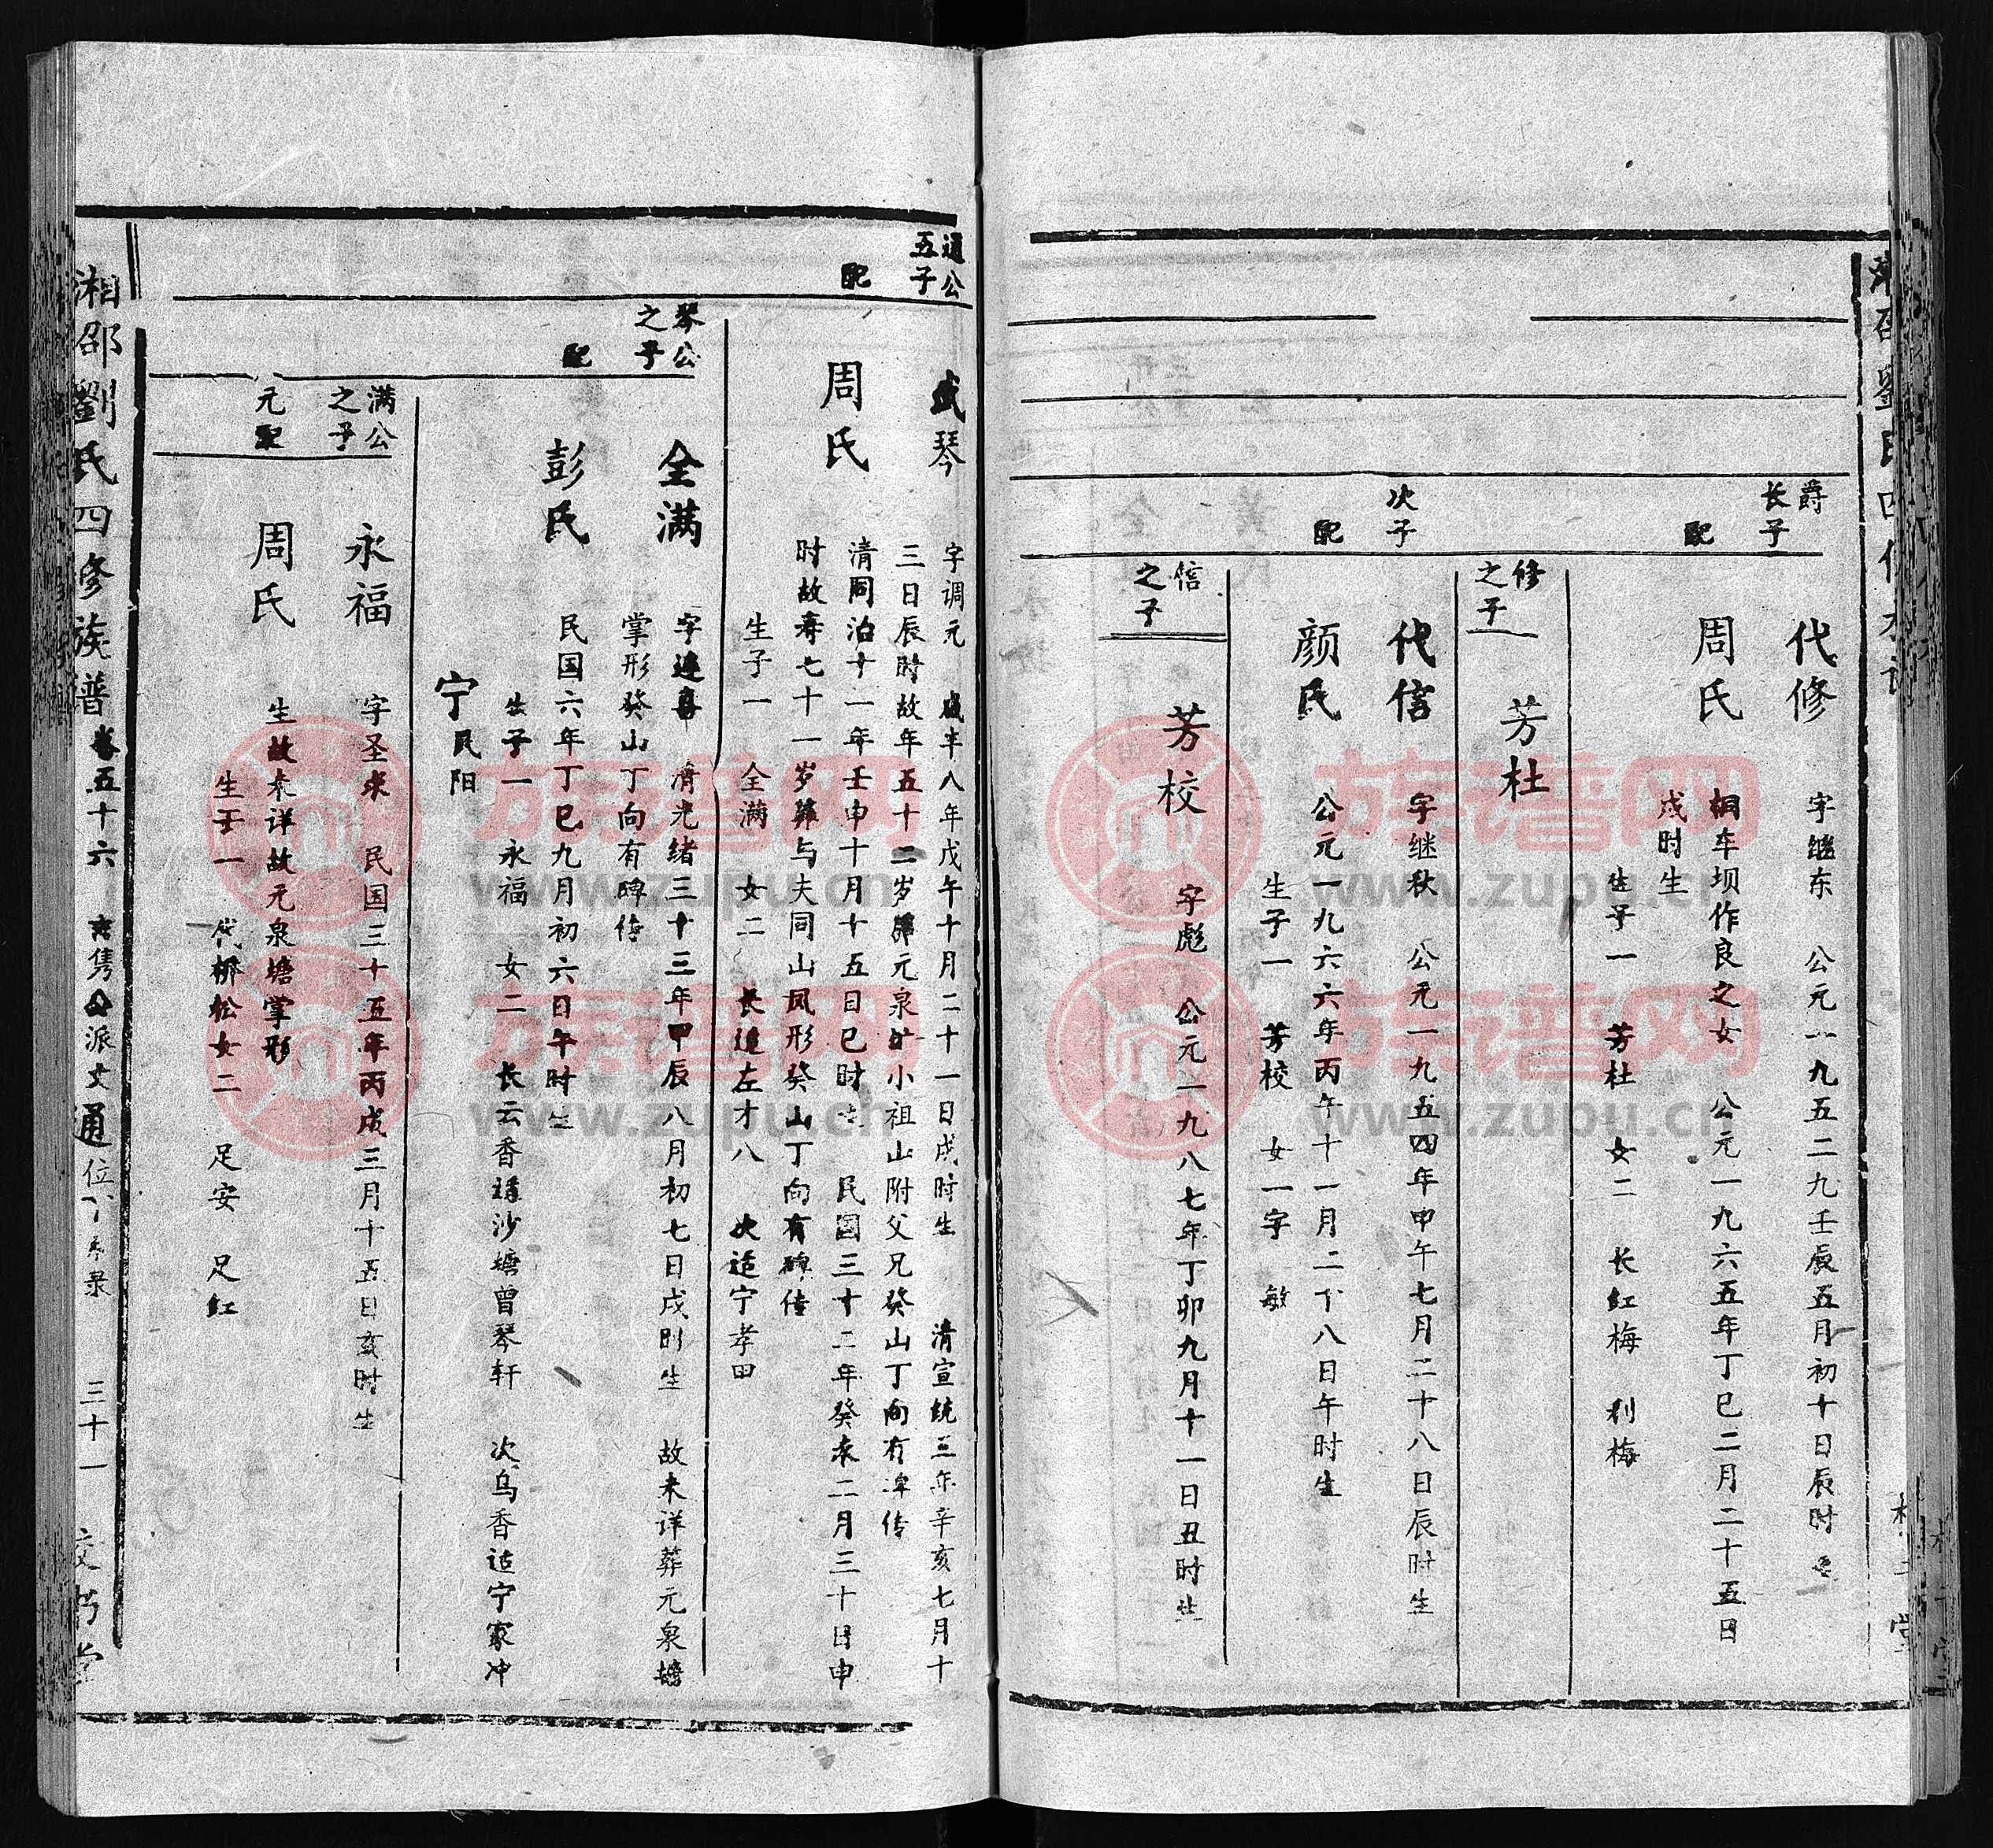 爵
长子
代修
字继东 公元一九五二九壬辰五月初十日辰时
配
周氏
桐车坝作良之女 公元一九六五年丁巳二月二十五日
戌时生
生子一 芳杜 女二 长红梅 利梅
修
之子
芳杜
次子
代信
字继秋 公元一九五四年甲午七月二十八日辰时生
配
颜氏
公元一九六六年丙午十一月二十八日午时生
生子一 芳校 女一字 敏
信
之子
芳校
字彪 公元一九八七年丁卯九月十一日丑时生
通公
五子
武琴
字调元 咸丰八年戊午十月二十一日戌时生 清宣统三年辛亥七月十
三日辰时故年五十二岁葬元泉圹小祖山附父兄癸山丁向有碑传
配
周氏
清同治十一年壬申十月十五日巳时生 民国三十二年癸未二月三十日申
时故寿七十一岁葬与夫同山凤形癸山丁向有碑传
生子一 全满 女二 长适左才八 次适宁孝田
琴公
之子
全满
字连喜 清光绪三十三年甲辰八月初七日戌时生 故未详葬元泉塘
掌形癸山丁向有碑传
配
彭氏
民国六年丁巳九月初六日午时生
生子一 永福 女二 长云香适沙塘曾琴轩 次乌香适宁家冲
宁民阳
满公
之子
永福
字圣求 民国三十五年丙戌三月十五日亥时生
元配
周氏
生故未详故元泉塘掌形
生子一 代桥松女二 足安 足红
湘邵劉氏四修族譜 卷五十六 隽公派文通位下系录 三十一
族谱网
www.zupu.cn
族谱网
www.zupu.cn
族谱网
www.zupu.cn
族谱网
www.zupu.cn